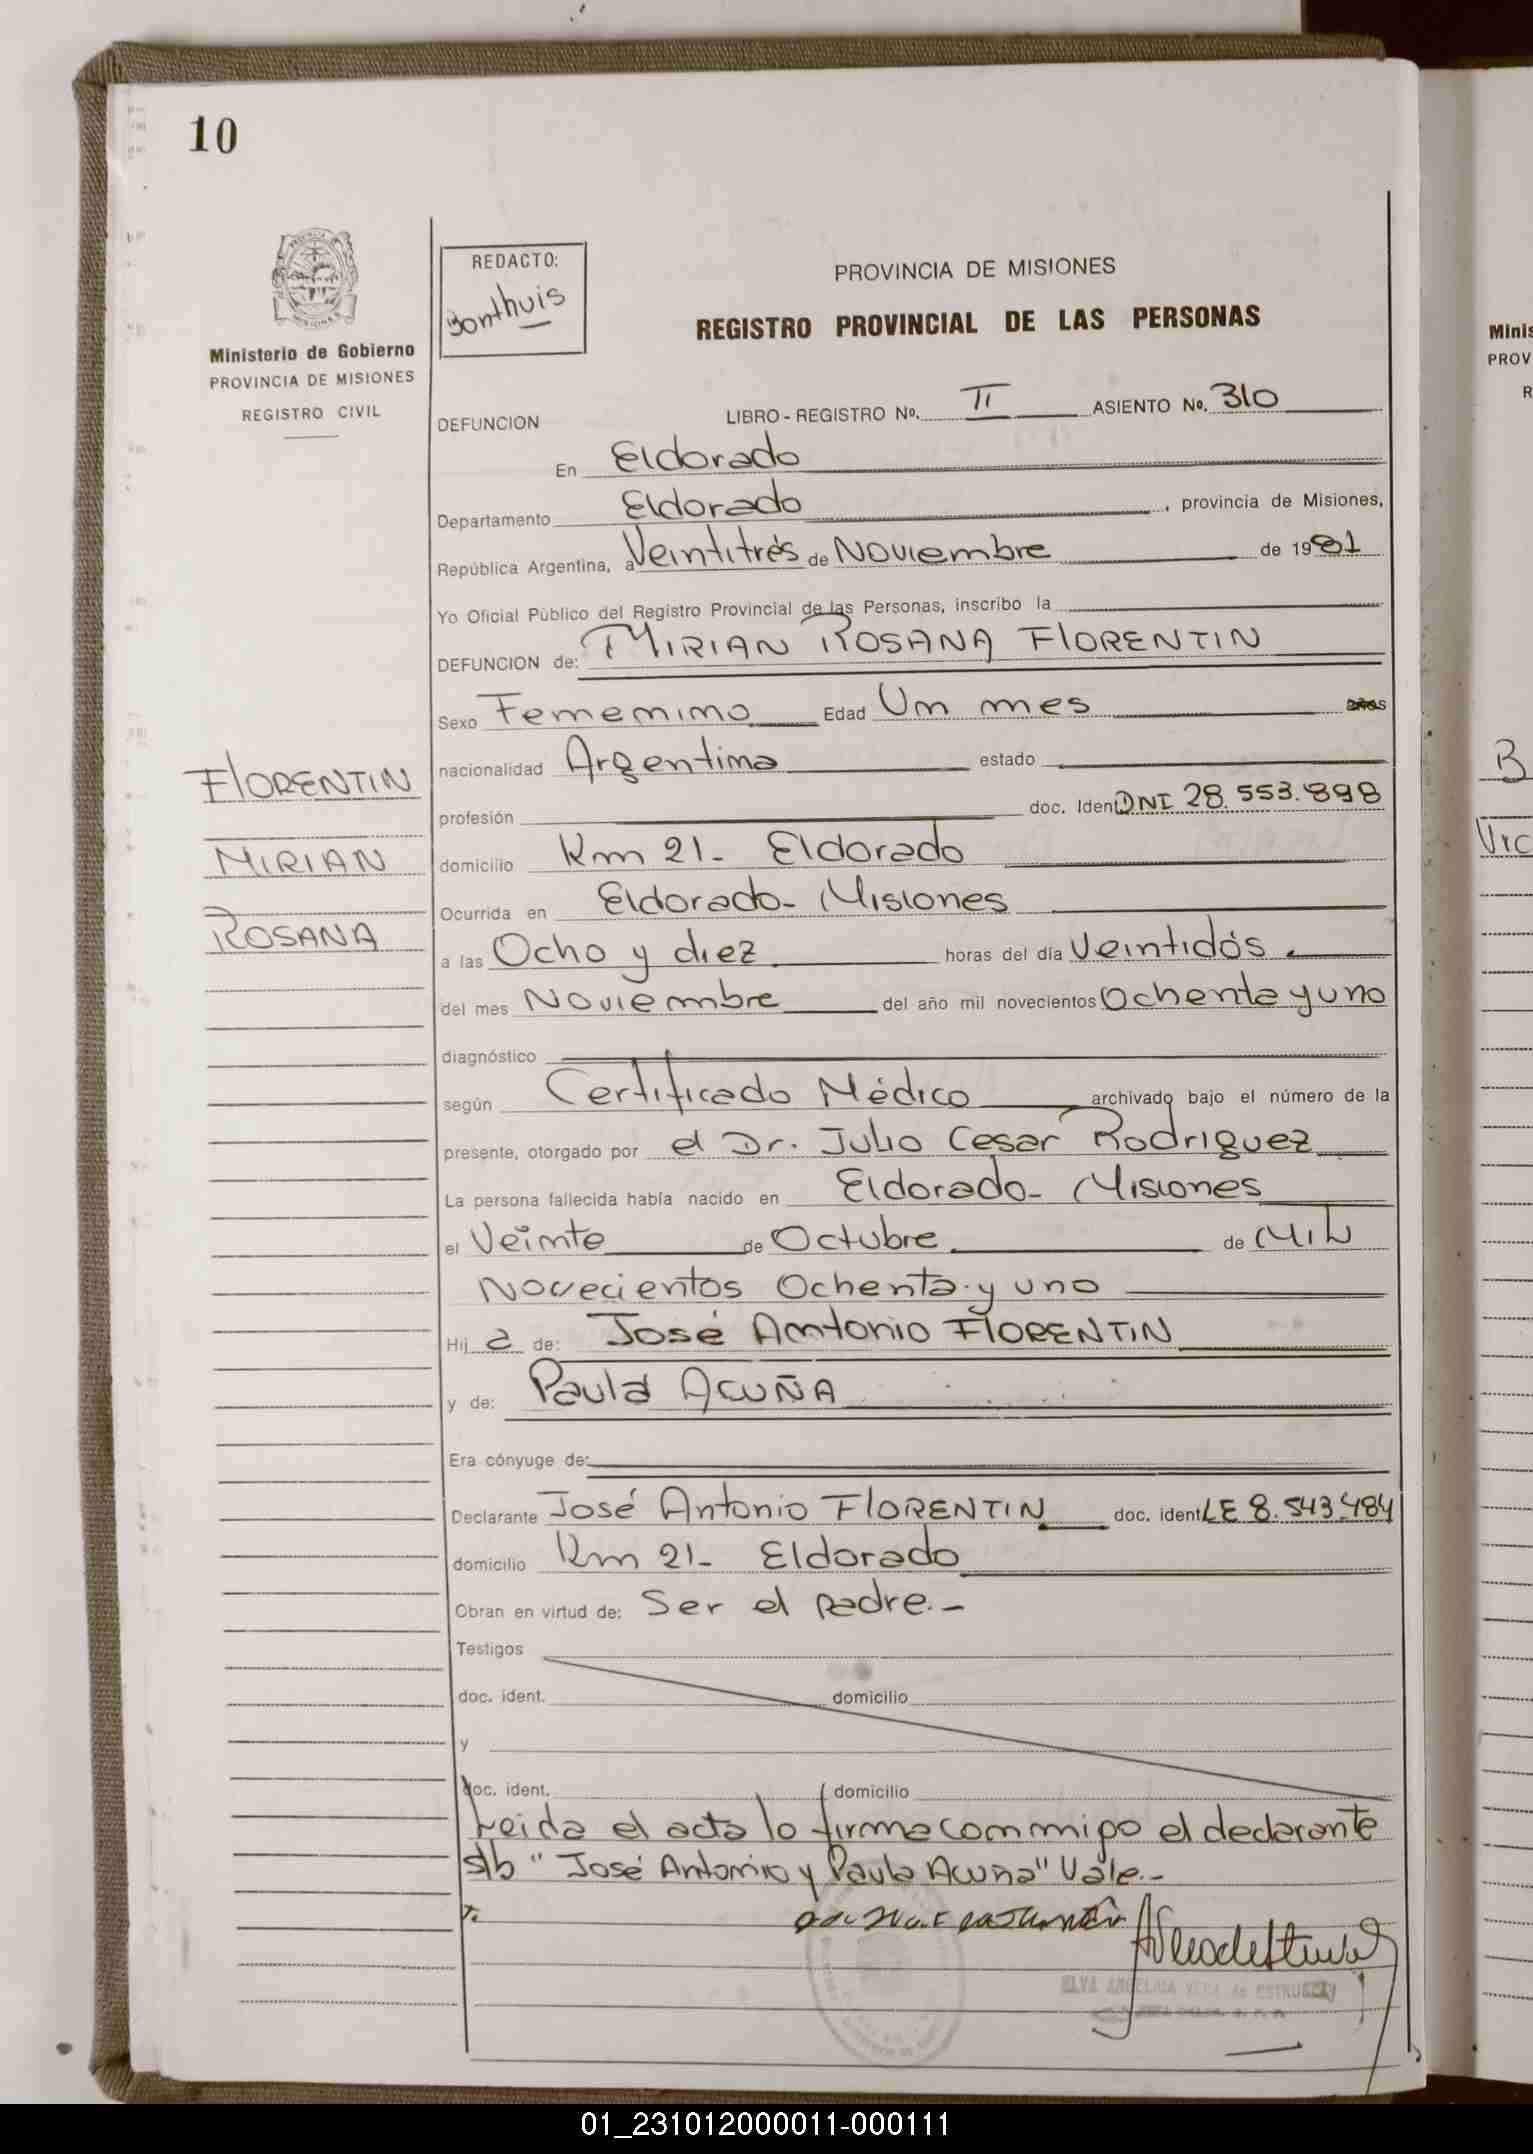 10
REDACTO:
Bonthuis
Ministerio de Gobierno
PROVINCIA DE MISIONES
REGISTRO CIVIL
PROVINCIA DE MISIONES
REGISTRO PROVINCIAL DE LAS PERSONAS
DEFUNCION LIBRO - REGISTRO No. II ASIENTO No. 310
En Eldorado
Departamento Eldorado, provincia de Misiones,
República Argentina, a Veintitrés de Noviembre de 1981
Yo Oficial Público del Registro Provincial de las Personas, inscribo la
DEFUNCION de: MIRIAN ROSANA FLORENTIN
Sexo Femenino Edad Un mes años
nacionalidad Argentina estado
profesión doc. Ident DNI 28.553.898
domicilio Km 21- Eldorado
Ocurrida en Eldorado- Misiones
a las Ocho y diez horas del día Veintidós
del mes Noviembre del año mil novecientos Ochenta y uno
diagnóstico
según Certificado Médico archivado bajo el número de la
presente, otorgado por el Dr. Julio Cesar Rodriguez
La persona fallecida había nacido en Eldorado- Misiones
el Veinte de Octubre de Mil
Novecientos Ochenta y uno
Hij a de: José Antonio FLORENTIN
y de: Paula ACUÑA
Era cónyuge de:
Declarante José Antonio FLORENTIN doc. ident LE 8.543.484
domicilio Km 21- Eldorado
Obran en virtud de: Ser el padre.-
Testigos
doc. ident. domicilio
y
doc. ident. domicilio
Leida el acta lo firma conmigo el declarante
s/b "José Antonio y Paula Acuña" Vale.-
FLORENTIN
MIRIAN
ROSANA
ELVA ANGELICA VERA de ESTRUBCKY
Minis
PROV
R
B
Vic
01_231012000011-000111